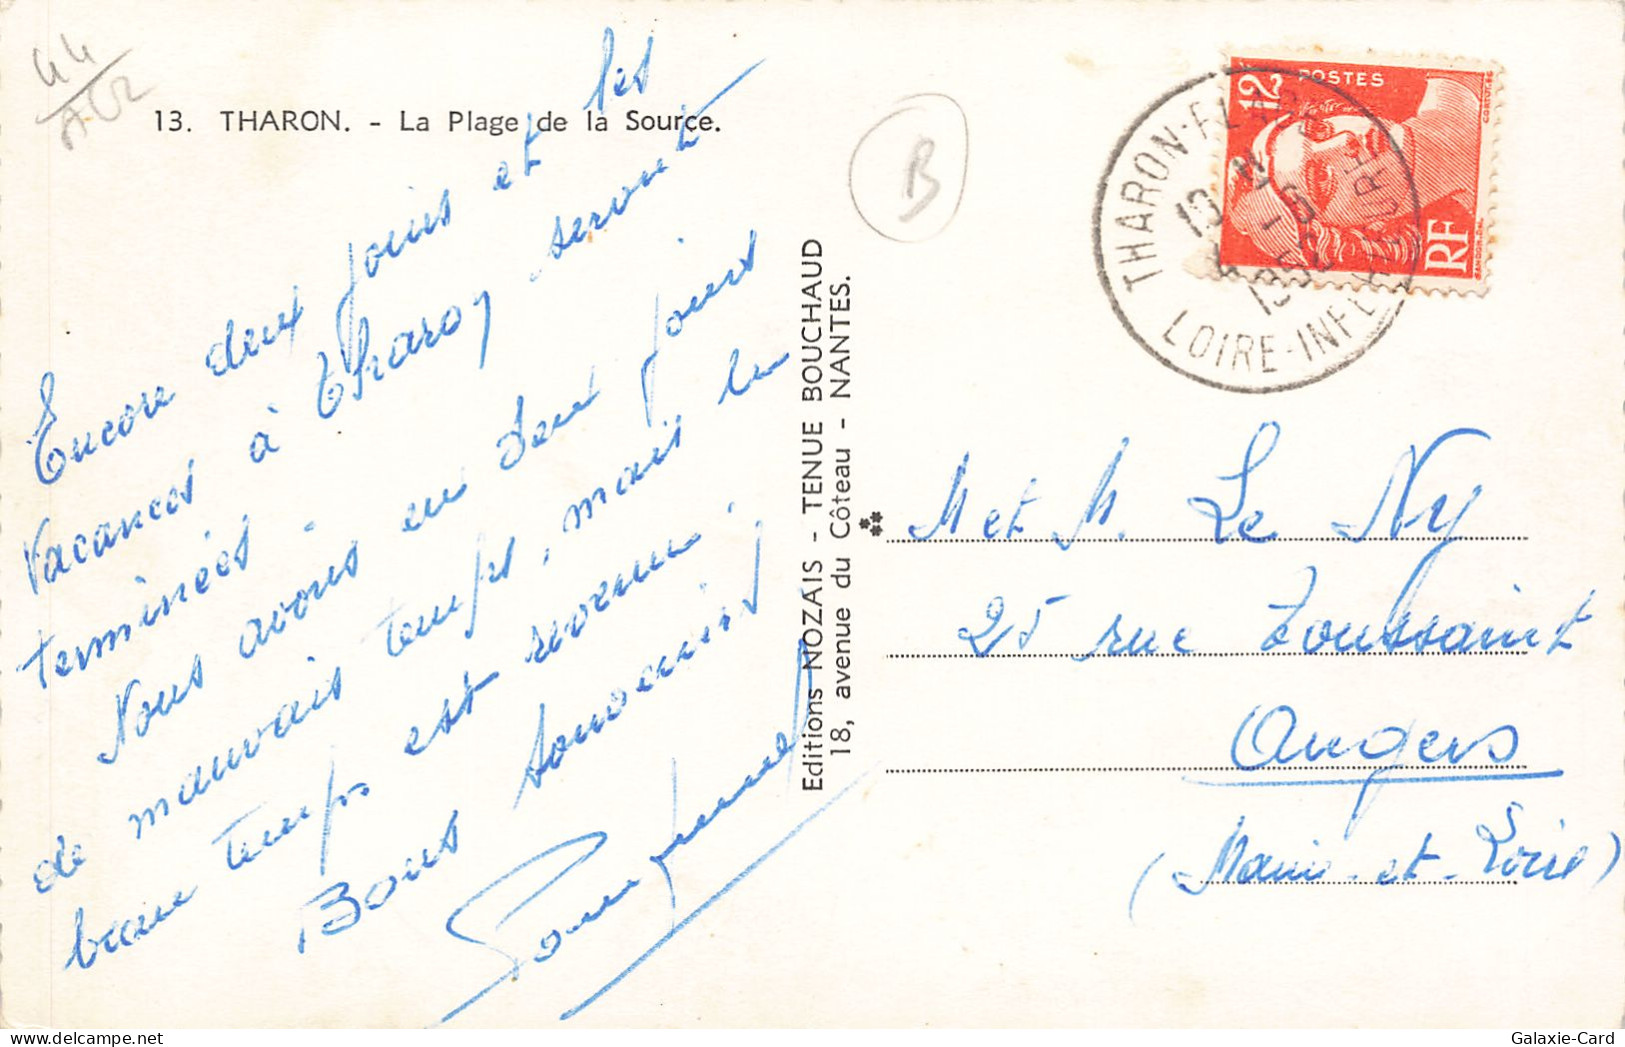 44
13. THARON. - La Plage de la Source.
Encore deux jours et les
vacances à Tharon seront
terminées.
Nous avons eu deux jours
de mauvais temps, mais le
beau temps est revenu.
Bons souvenirs
Editions NOZAIS - TENUE BOUCHAUD
18, avenue du Côteau - NANTES.
B
12 POSTES
RF
THARON-PLAGE
10 H
4 -9
1952
LOIRE-INFERIEURE
M et M. Le Ny
25 rue Toussaint
Angers
(Maine-et-Loire)
Galaxie-Card